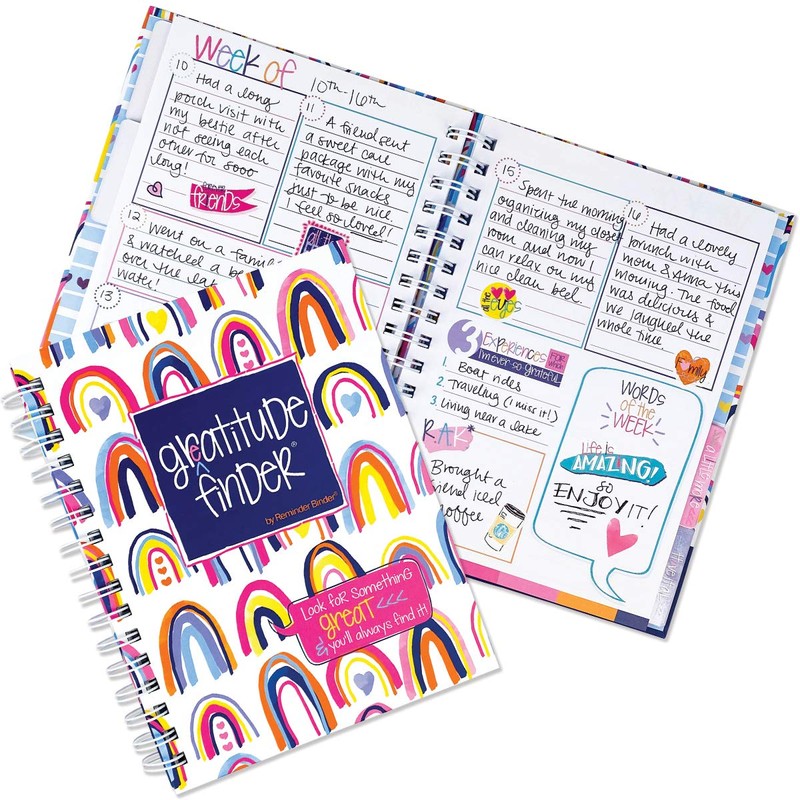 Week of
10th-16th
10
Had a long
porch visit with
my bestie after
not seeing each
other for sooo
long!
friends
11
A friend sent
a sweet care
package with my
favorite snacks
just to be nice.
I feel so loved!
12
Went on a family
& watched a
over the
water!
13
15
Spent the morning
organizing my closet
and cleaning my
room and now I
can relax on my
nice clean bed.
all the
eyes
16
Had a lovely
brunch with
mom & Anna this
morning. The food
was delicious &
we laughed the
whole time
family
3 Experiences FOR WHICH
I'm ever-so grateful
1. Boat rides
2. Traveling (I miss it!)
3. Living near a lake
R.A.K*
Brought a
friend iced
coffee
WORDS
of the
WEEK
life is
AMAZING!
so
ENJOY IT!
greatitude
finder®
by Reminder Binder®
Look for something
great <<<
& you'll always find it!